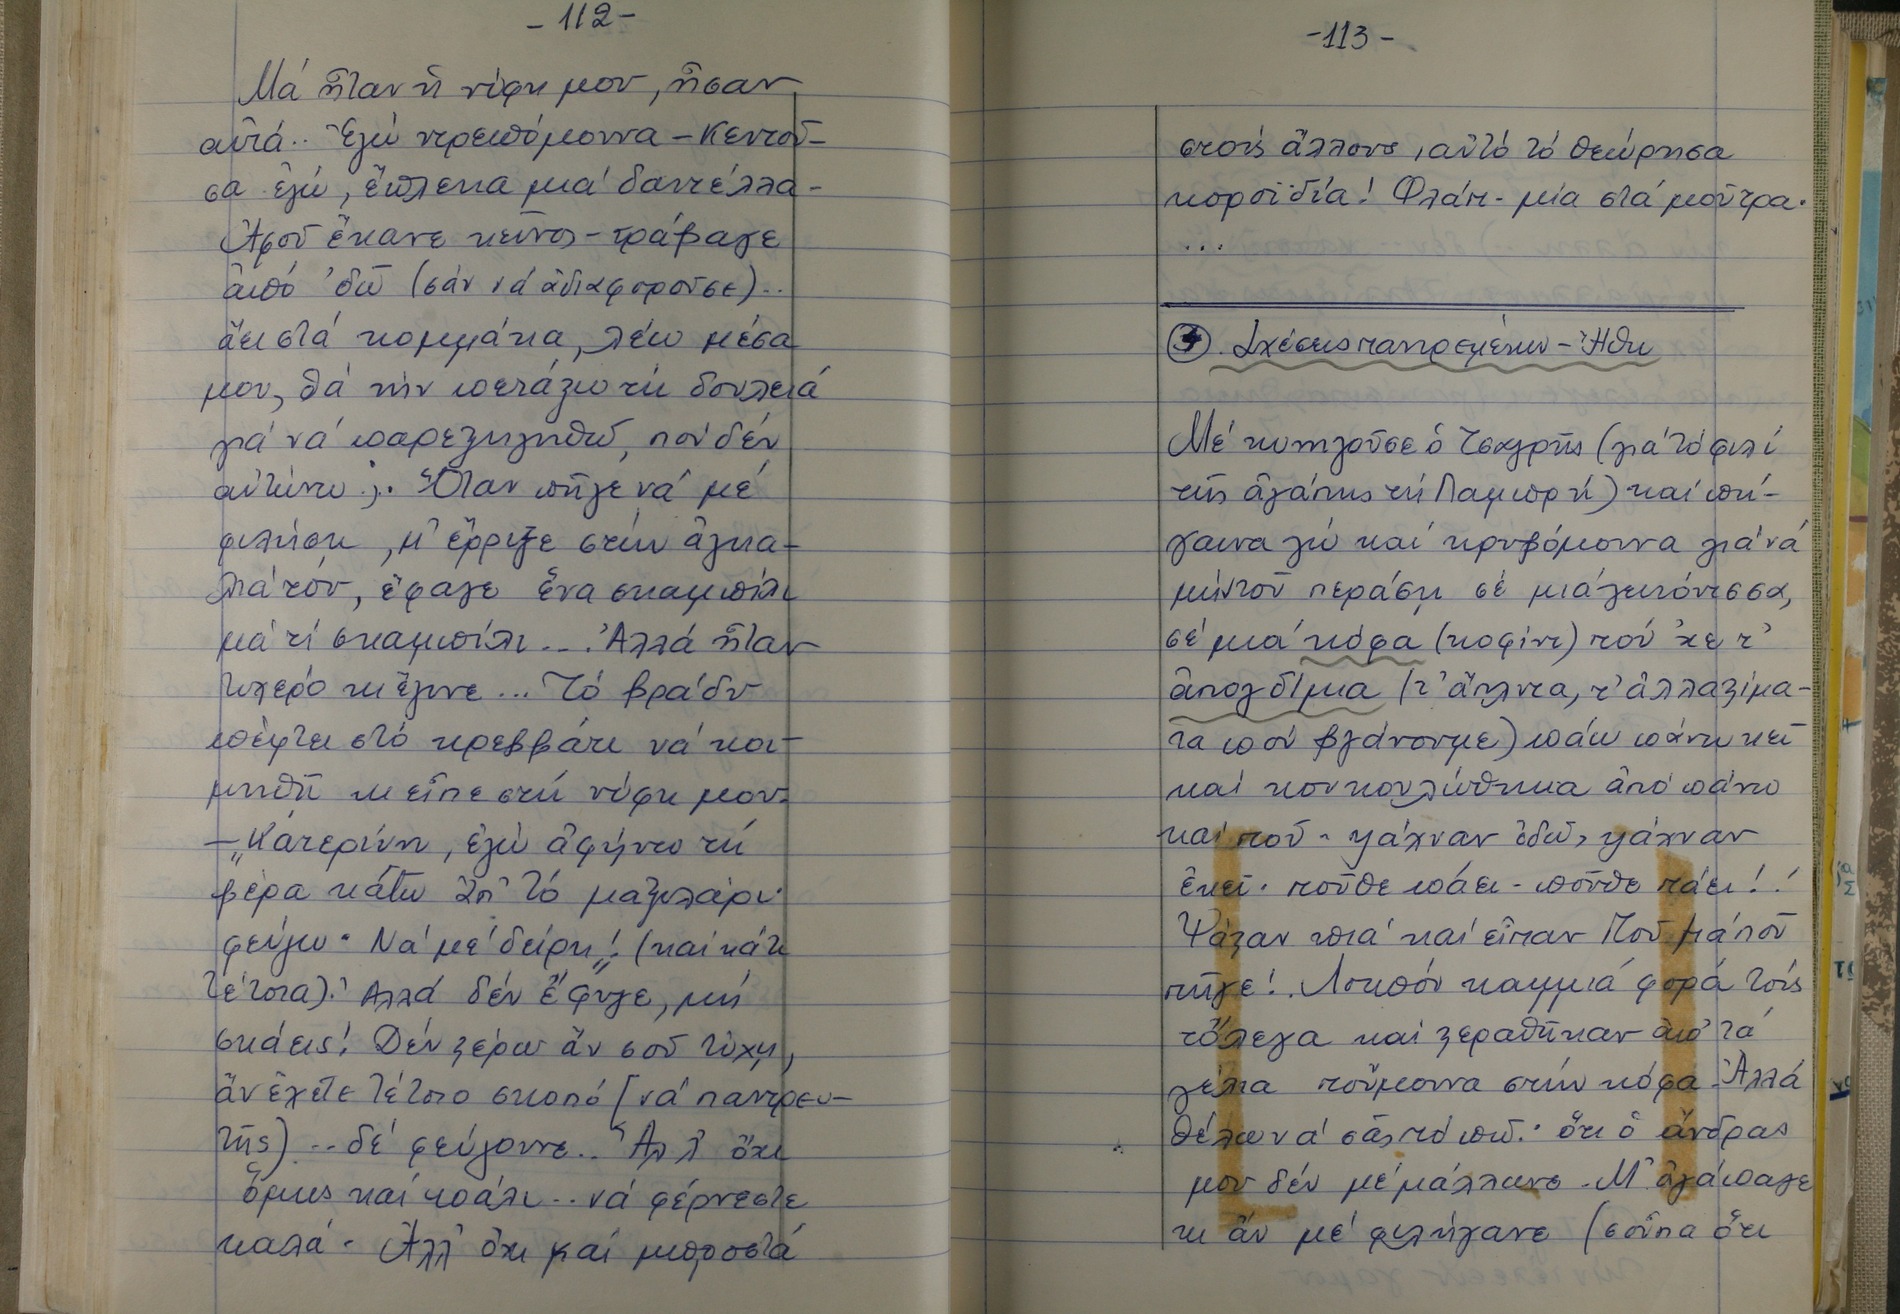 - 112 -
Μά ἦταν ἡ νύφη μου, ἦσαν
αὐτά.. Ἐγώ ντρεπόμουνα - Κεντοῦ-
σα ἐγώ, ἔπλεκα μιά δαντέλλα -
Ἀφοῦ ἔκανε κεῖνος - τράβαγε
ἀπό 'δῶ (σάν νά ἀδιαφοροῦσε)..
ἄει στά κομμάτια, λέω μέσα
μου, θά τήν πετάξω τή δουλειά
γιά νά παρεξηγηθῶ, πού δέν
αὐτώνω ;. Ὅταν πῆγε νά μέ
φιλήση, μ' ἔρριξε στήν ἀγκα-
λιά του, ἔφαγε ἕνα σκαμπίλι
μά τί σκαμπίλι... Ἀλλά ἦταν
τυχερό κι ἔγινε... Τό βράδυ
πέφτει στό κρεββάτι νά κοι-
μηθῆ κι εἶπε στή νύφη μου:
- „Κατερίνη, ἐγώ ἀφήνω τή
βέρα κάτω ἀπ' τό μαξιλάρι·
φεύγω· Νά μέ δείρη!„ (καί κάτι
τέτοια).' Ἀλλά δέν ἔφυγε, μή
σκάεις! Δέν ξέρω ἄν σοῦ τύχη,
ἄν ἔχετε τέτοιο σκοπό [νά παντρευ-
τῆς) .. δέ φεύγουνε.. Ἀλλ' ὄχι
ὅμως καί πάλι .. νά φέρνεστε
καλά· Ἀλλ' ὄχι καί μπροστά
- 113 -
στούς ἄλλους, αὐτό τό θεώρησα
κοροϊδία! Φλάπ - μία στά μοῦτρα.
...
Σχέσεις παντρεμένων - Ἤθη
Μέ κυνηγοῦσε ὁ Τσαγρῆς (γιά τό φιλί
τῆς ἀγάπης τή Λαμπρή) καί πή-
γαινα γώ καί κρυβόμουνα γιά νά
μήν τοῦ περάση σέ μιά γειτόνισσα,
σέ μιά κόφα (κοφίνι) πού 'χε τ'
ἀπογδίμια (τ' ἄπλυτα, τ' ἀλλαξίμα-
τα πού βγάνουμε) πάω πάνω κεῖ
καί κουκουλώθηκα ἀπό πάνω
καί ποῦ - ψάχναν ἐδῶ, ψάχναν
ἐκεῖ· ποῦθε πάει - ποῦθε πάει!!
Ψάξαν πιά καί εἶπαν Ποῦ μά ποῦ
πῆγε!. Λοιπόν καμμιά φορά τούς
τὄλεγα καί ξεραθῆκαν ἀπό τά
γέλια ποὔμουνα στήν κόφα - Ἀλλά
θέλω νά σᾶς τό πῶ· ὅτι ὁ ἄνδρας
μου δέν μέ μάλλωνε - Μ' ἀγάπαγε
κι ἄν μέ φιλήγανε (σοὖπα ὅτι